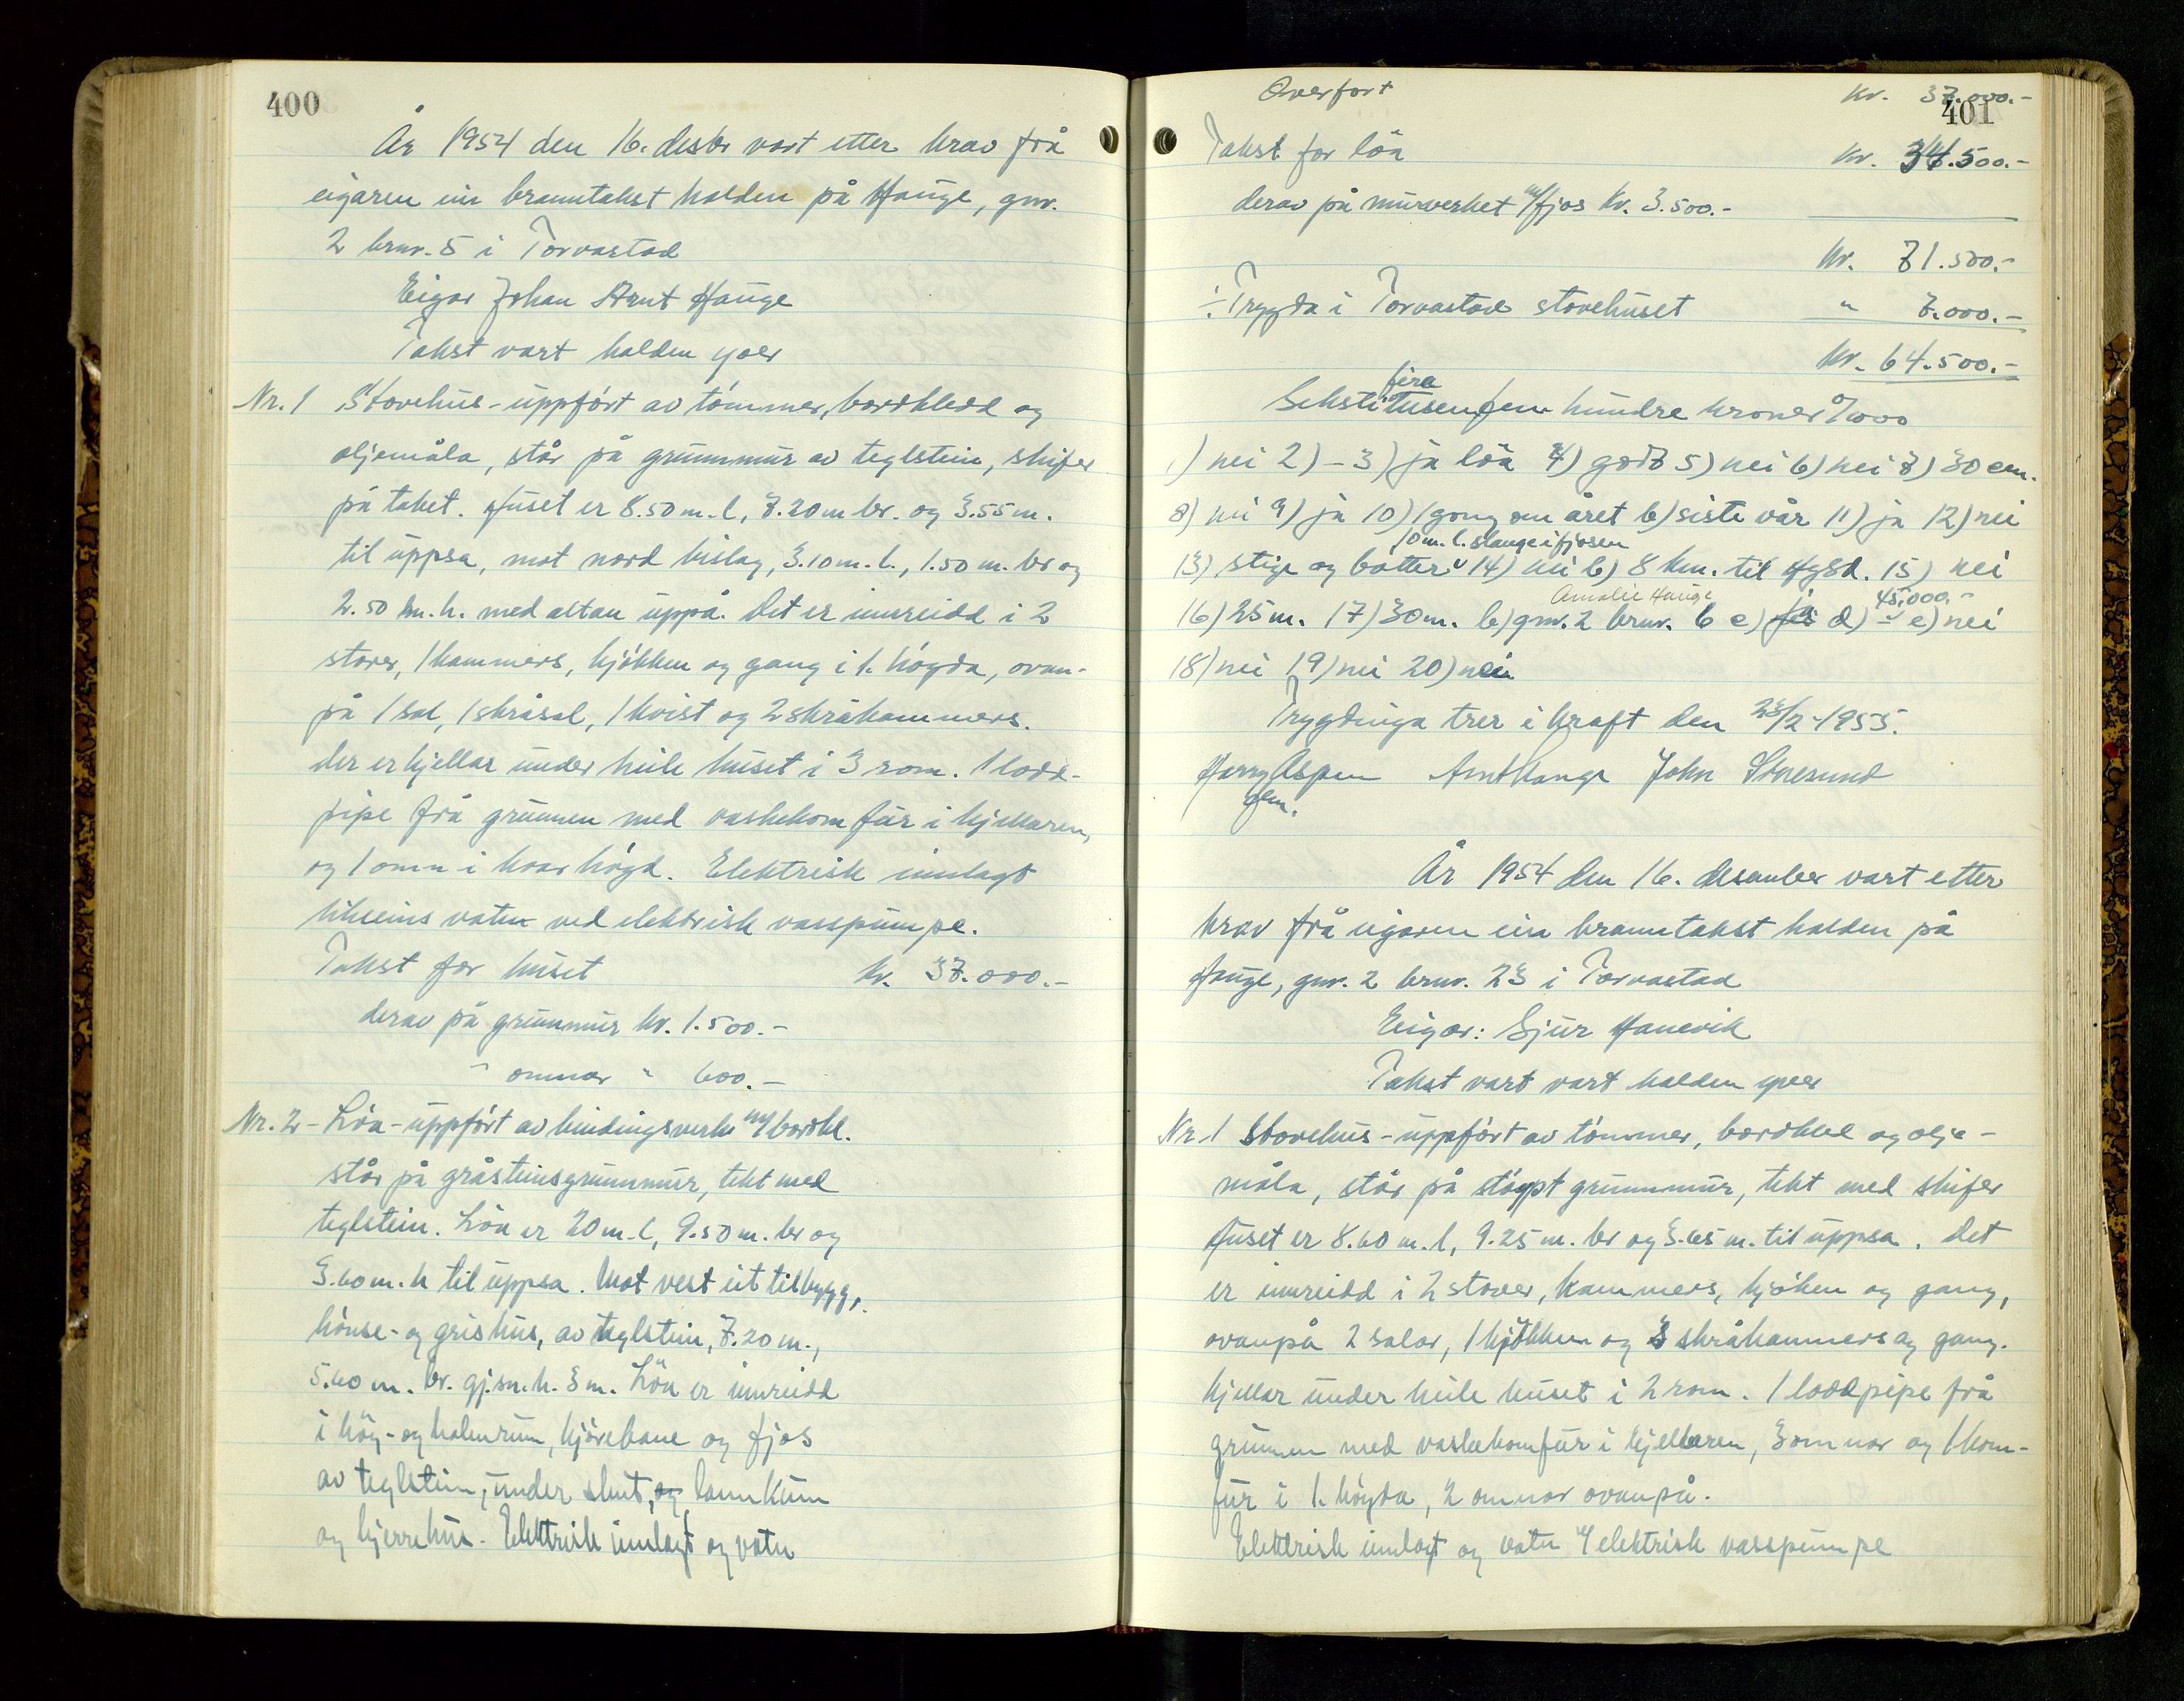 400
År 1954 den 16. desbr vart etter krav frå
eigaren ein branntakst halden på Hauge, gnr.
2 brnr. 5 i Torvastad
Eigar Johan Arnt Hauge
Takst vart halden yver
Nr. 1 Stovehus - uppfört av tömmer, bordkledd og
oljemåla, står på grunnmur av teglstein, skifer
på taket. Huset er 8.50 m. l, 7.20 m br. og 3.55 m.
til uppsa, mot nord bislag, 3.10 m. l., 1.50 m. br og
2.50 m. h. med altan uppå. Det er innreidd i 2
stover, 1 kammers, kjökken og gang i 1. högda, ovan-
på 1 sal, 1 skråsal, 1 kvist og 2 skråkammers.
Der er kjellar under heile huset i 3 rom. 1 lodd-
pipe frå grunnen med vaskekomfur i kjellaren,
og 1 omn i kvar högd. Elektrisk innlagt
likeeins vatn ved elektrisk vasspumpe.
Takst for huset kr. 37.000.-
derav på grunnmur kr. 1.500.-
" omnar " 600.-
Nr. 2 - Löa - uppfört av bindingsverk m/bordkl.
står på gråsteinsgrunnmur, tekt med
teglstein. Löa er 20 m. l, 9.50 m. br og
3.60 m. h til uppsa. Mot vest eit tilbygg,
hönse- og grishus, av teglstein, 7.20 m.,
5.60 m. br. gj.sn. h. 3 m. Löa er innreidd
i höy- og halmrum, kjörebane og fjos
av teglstein, under slut, og lannkum
og kjerrehus. Elektrisk innlagt og vatn
401
Overfört kr. 37.000.-
Takst for löa kr. 34.500.-
derav på murverket m/fjos kr. 3.500.-
kr. 71.500.-
÷ Trygda i Torvastad stovehuset " 7.000.-
kr. 64.500.-
fire
Sekstitusenfem hundre kroner %ooo
1) nei 2) - 3) ja löa 4) godt 5) nei 6) nei 7) 30 cm.
8) nei 9) ja 10) 1 gong om året b) siste vår 11) ja 12) nei
10 m. l. slange i fjosen
13) stige og bötter 14) nei b) 8 km. til Hgsd. 15) nei
Amalie Hauge 45.000.-
16) 25 m. 17) 30 m. b) gnr. 2 brnr. 6 c) ja d) - e) nei
18) nei 19) nei 20) nei
Trygdinga trer i kraft den 23/2-1955.
Harry Aspen Arnt Hauge John Storesund
fm.
År 1954 den 16. desember vart etter
krav frå eigaren ein branntakst halden på
Hauge, gnr. 2 brnr. 23 i Torvastad
Eigar: Sjur Hanevik
Takst vart vart halden yver
Nr. 1 Stovehus - uppfört av tömmer, bordkled og olje-
måla, står på stöypt grunnmur, tekt med skifer
Huset er 8.60 m. l, 9.25 m. br og 3.65 m. til uppsa. Det
er innreidd i 2 stover, kammers, kjöken og gang,
ovanpå 2 salar, 1 kjökken og 3 skråkammers og gang.
Kjellar under heile huset i 2 rom. 1 loddpipe frå
grunnen med vaskekomfur i kjellaren, 3 omnar og 1 kom-
fur i 1. högda, 2 omnar ovanpå.
Elektrisk innlagt og vatn v/elektrisk vasspumpe